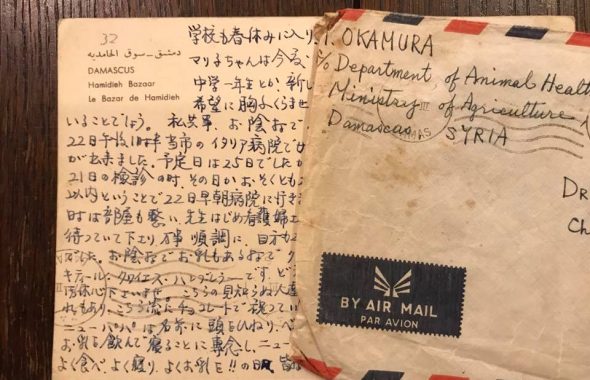 32
دمشق – سوق الحامديه
DAMASCUS
Hamidieh Bazaar
Le Bazar de Hamidieh
学校も春休みに入り、
マリ子ちゃんは今度
中学一年生とか、新し
希望に胸ふくらませ
いることでしょう。私共事、お陰
22日午後1時半当市のイタリア病院で
が出来ました。予定日は25日でしたが
21日の検診の時、その日かおそくとも
以内ということで22日早朝病院に行き
時は部屋も整い、先生はじめ看護婦
待っていて下さり 順調に、目方も
でした。お乳もある
キティール・クワイエス・です。ど
こちらの見知らぬ人達
れもあり、こちら流にチョコレートで祝ってい
ニューパパは名前に頭をひねり、
お乳を飲んで寝ることに専念し、ニュー
よく食べ、よく寝り、よくお乳を!!の日、皆
T. OKAMURA
c/o Department of Animal Healt
Ministry of Agriculture
Damascus, SYRIA
Dr
Ch
BY AIR MAIL
PAR AVION